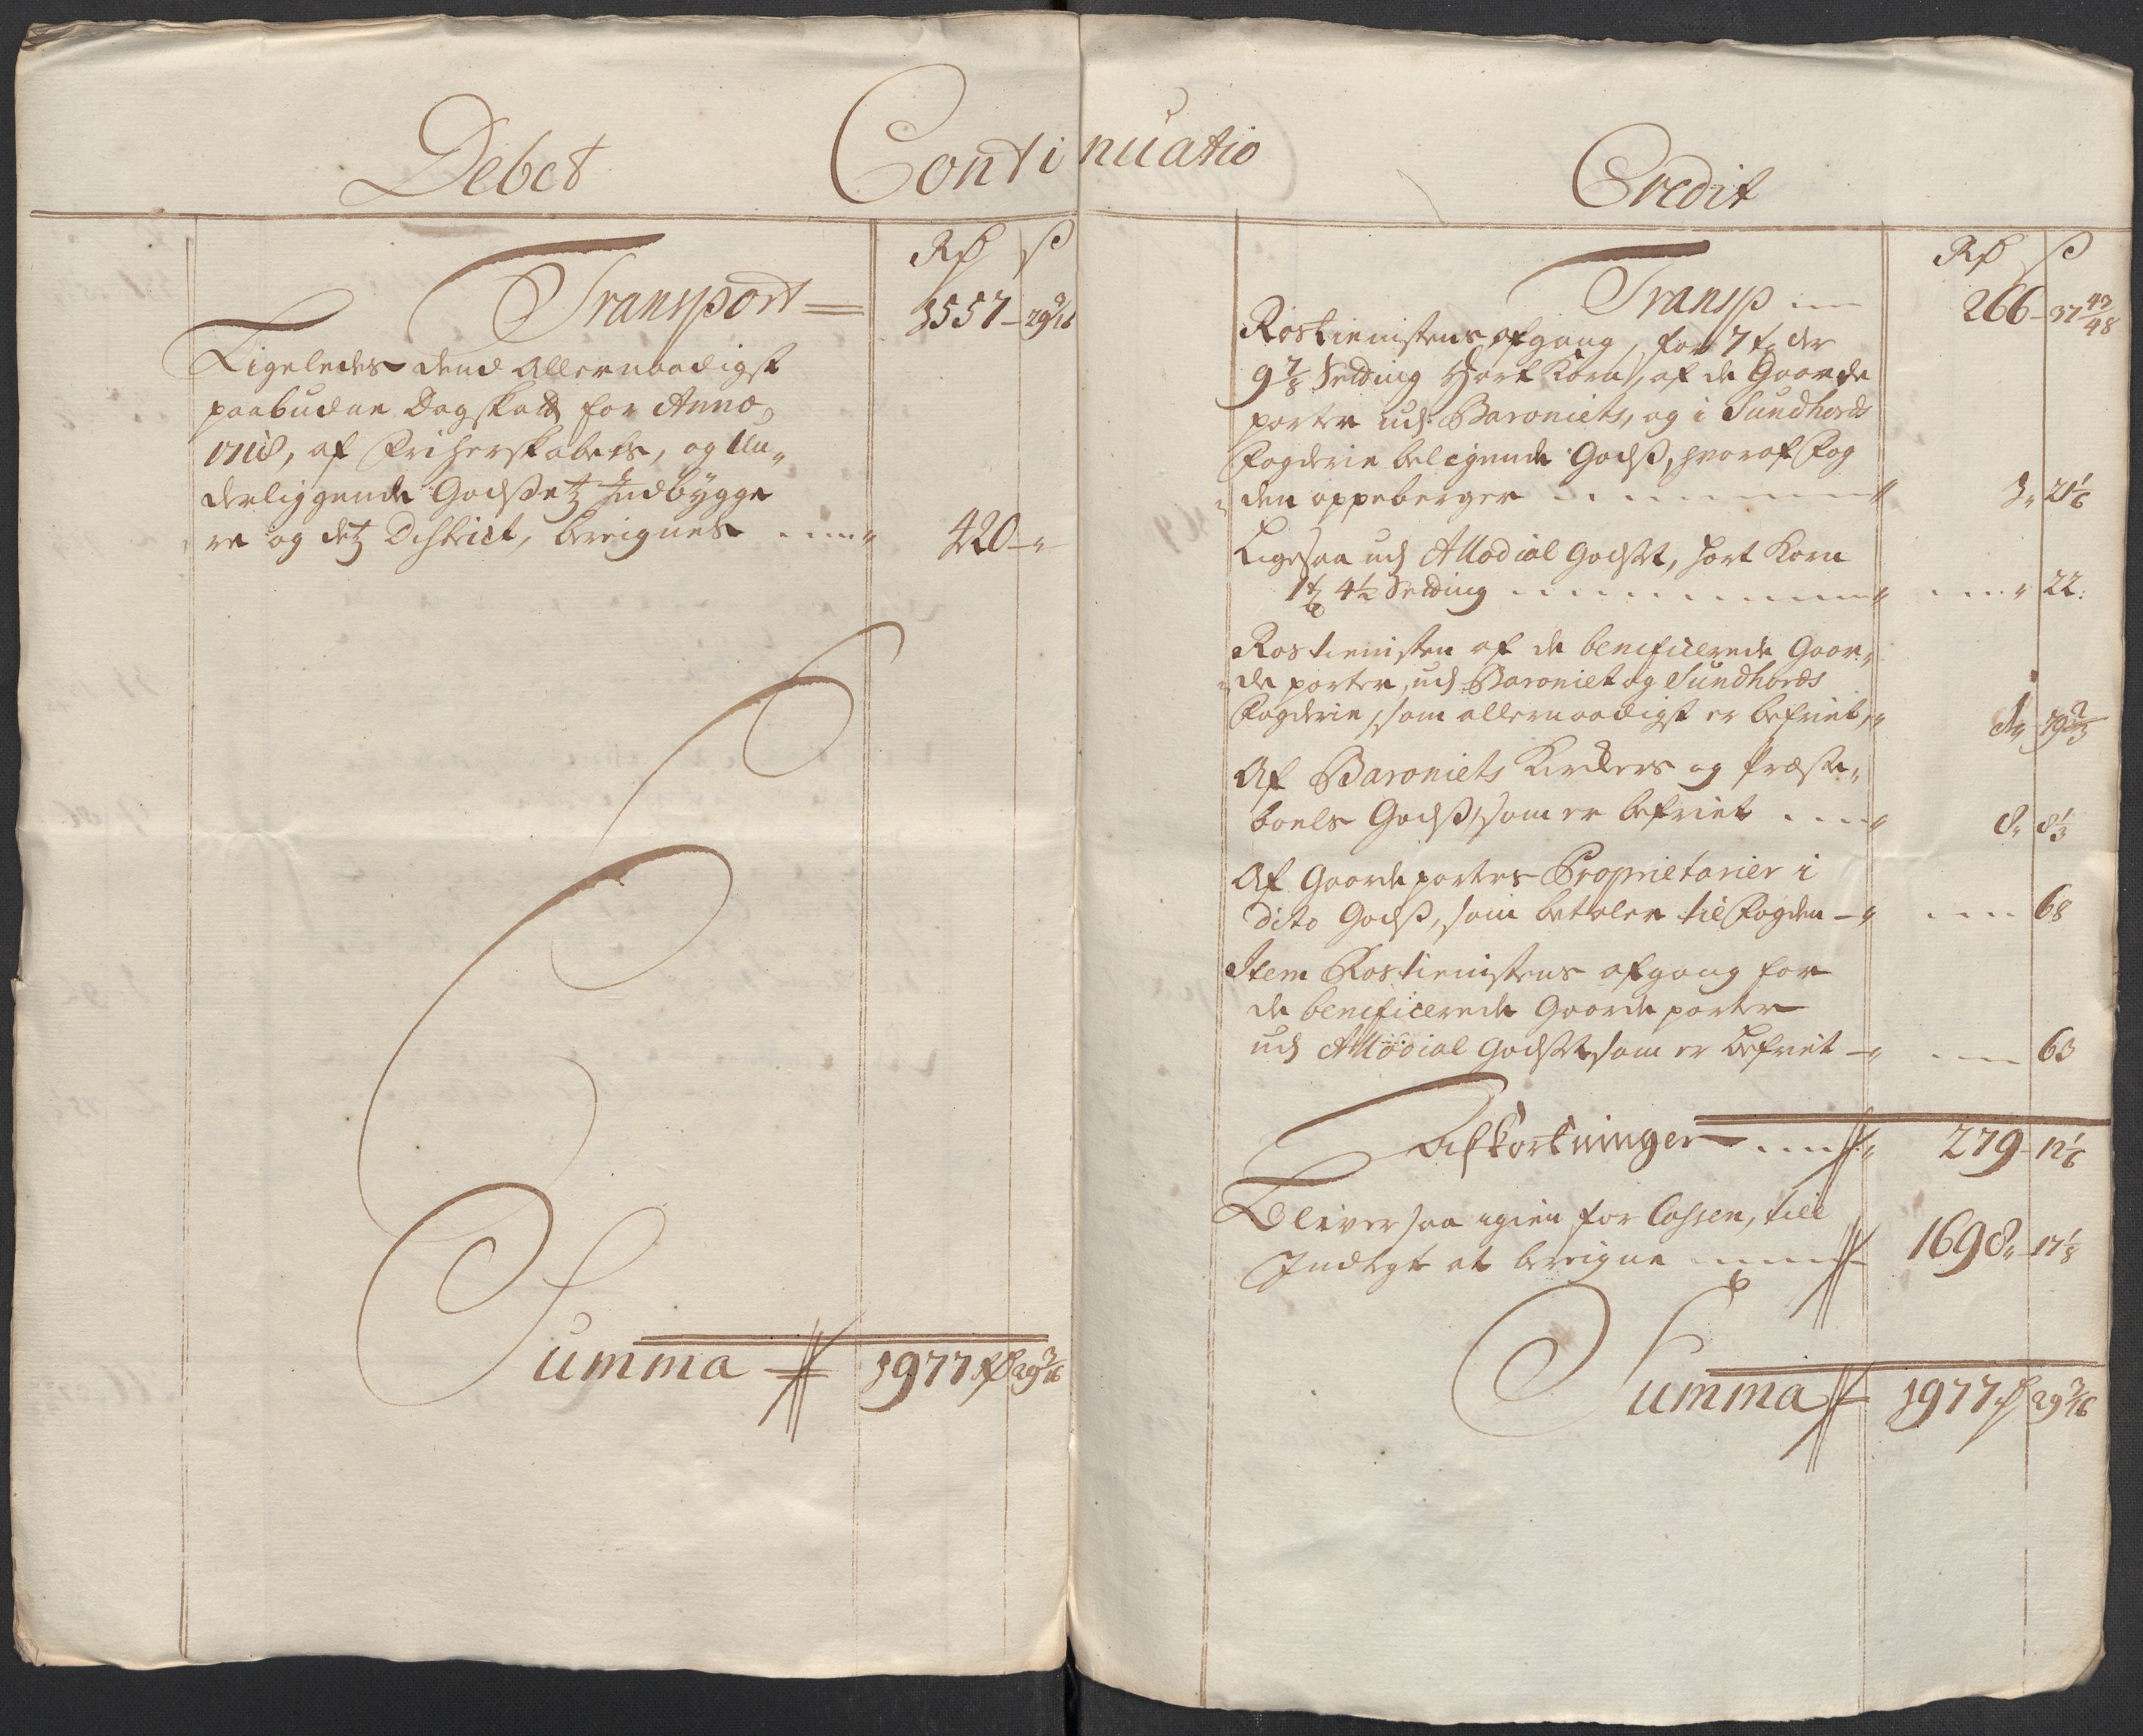 Debet Continuatio Credit
Rd ß
Transport 1557 – 29 3/16
Ligeledes dend Allernaadigst
paabudne Dagskatt for Anno
1718, af Friherskabets, og Un„
derliggende Godsetz Indbygge
re og detz District, bereignes 420 –
Summa 1977 Rd 29 3/16
Rd ß
Transp 266 – 37 43/48
Rostienistens afgang, for 7 td der
9 7/8 Setding Hart Korn, af de Gaarde
parter udj Baroniets, og i Sundhords
Fogderie beligende Godß, hvoraf Fog
den oppeberger 3 „ 21 1/6
Ligesaa udj Allodial Godset, hart Korn
1 td 4 1/2 Setding 22
Rostienisten af de beneficerede Gaar„
de parter, udj Baroniet og Sundhords
Fogderie, som allernaadigst er befriet
Af Baroniets Kirckers og Præste„
boels Godß, som er befriet 8 „ 8 1/3
Af Gaardeparters Proprietarier i
dito Godß, som betaler til Fogden 68
Item Rostienistens afgang for
de beneficerede Gaarde parter
udj Allodial Godset som er befriet 63
Afkortninger 279 – 12 1/6
Bliver saa igien for Cassen, till
Indtegt at bereigne 1698 „ 17 1/8
Summa 1977 Rd 29 3/16